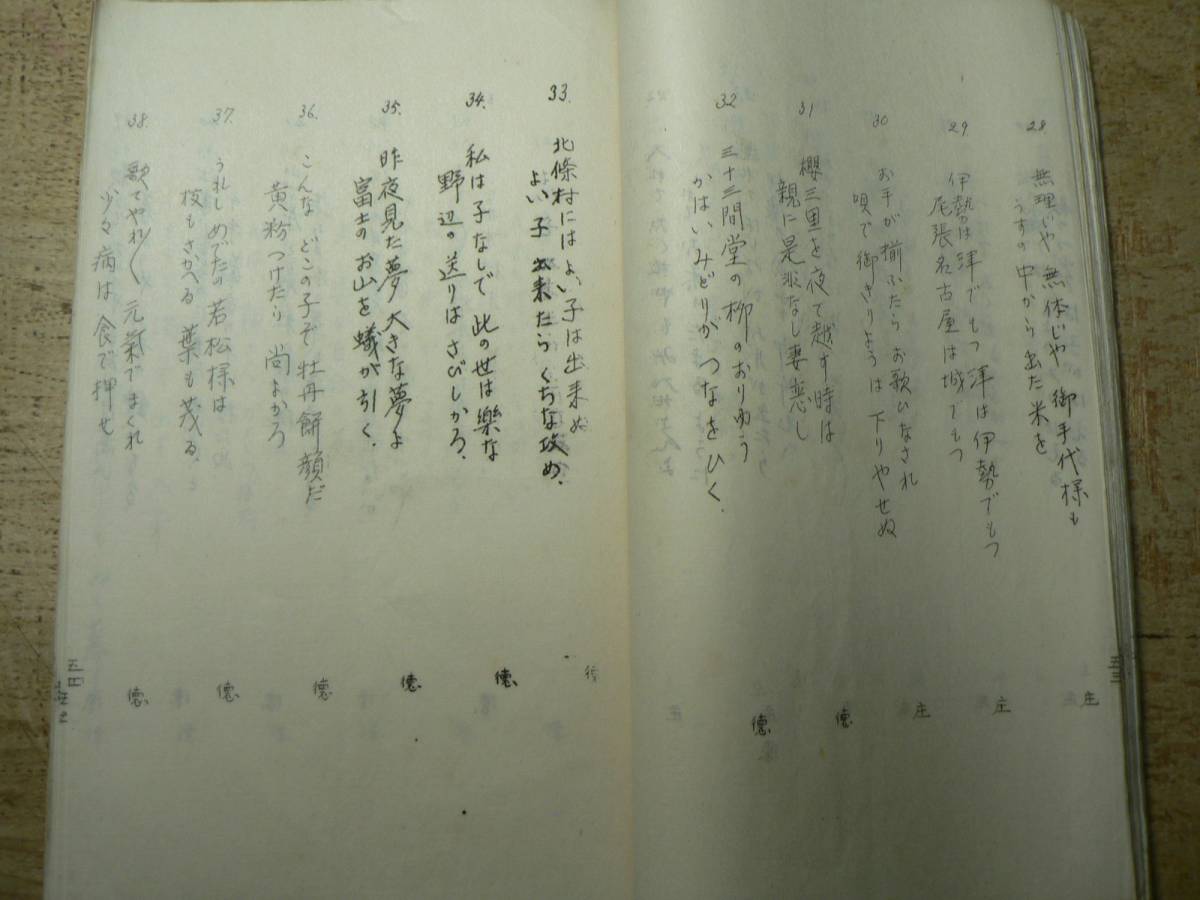 28.
無理じや 無体じや 御手代様も
うすの中から出た米を
庄
29.
伊勢は津でもつ 津は伊勢でもつ
尾張名古屋は城でもつ
庄
30
お手が揃ふたら お歌ひなされ
唄で御きりようは 下りやせぬ
庄
31
櫻三里を夜で越す時は
親に是非なし妻悲し
徳
32
三十三間堂の柳のおりゆう
かはいみどりが つなをひく.
徳
五三
33.
北條村にはよい子は出来ぬ
よい子出来たら くちな攻め.
34.
私は子なしで 此の世は樂な
野辺の送りは さびしかろ.
徳
35.
昨夜見た夢 大きな夢よ
富士のお山を 蟻が引く.
徳
36.
こんな どこの子ぞ 牡丹餅顔だ
黄粉つけたら 尚よかろ
徳
37.
うれし めでたの 若松様は
枝もさかへる 葉も茂る.
徳
38.
歌てやれ〱 元氣でまくれ
少々病は 食で押せ
徳
五四